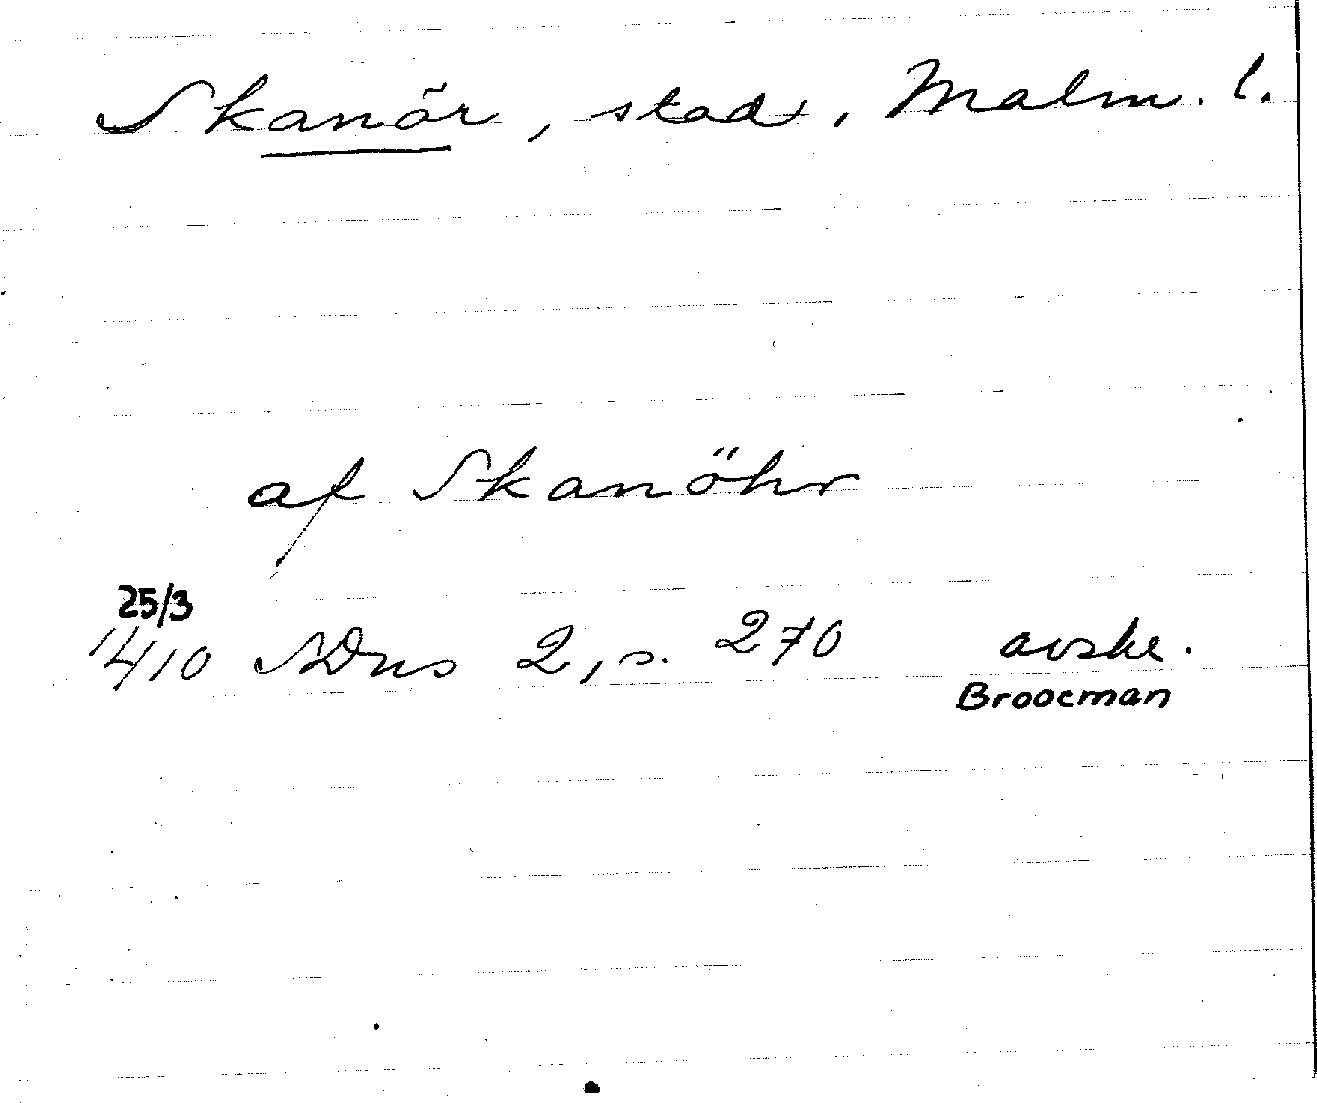 Skanör, stad, Malm. l.
af Skanöhr
25/3
1410 NDns 2, s. 270 avskr.
Broocman